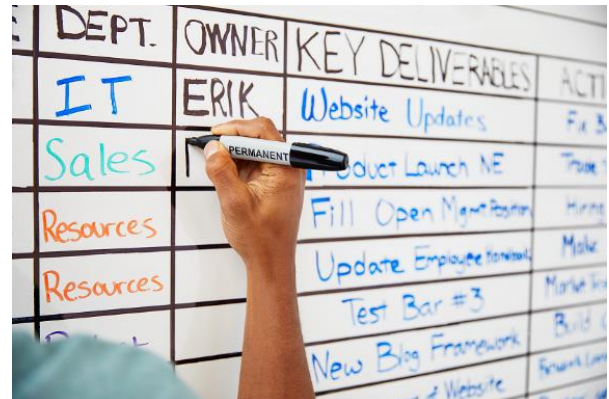 DEPT. OWNER KEY DELIVERABLES
IT ERIK Website Updates
Sales PERMANENT Launch NE
Resources Fill Open Mgmt Position Hiring
Resources Update Employee Handbook Make
Test Bar #3 Market
New Blog Framework Build
Website